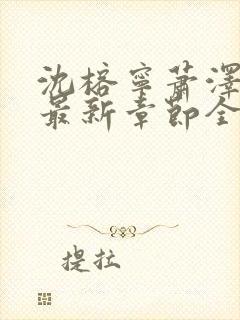 沈榕宁萧泽
最新章节全
提拉